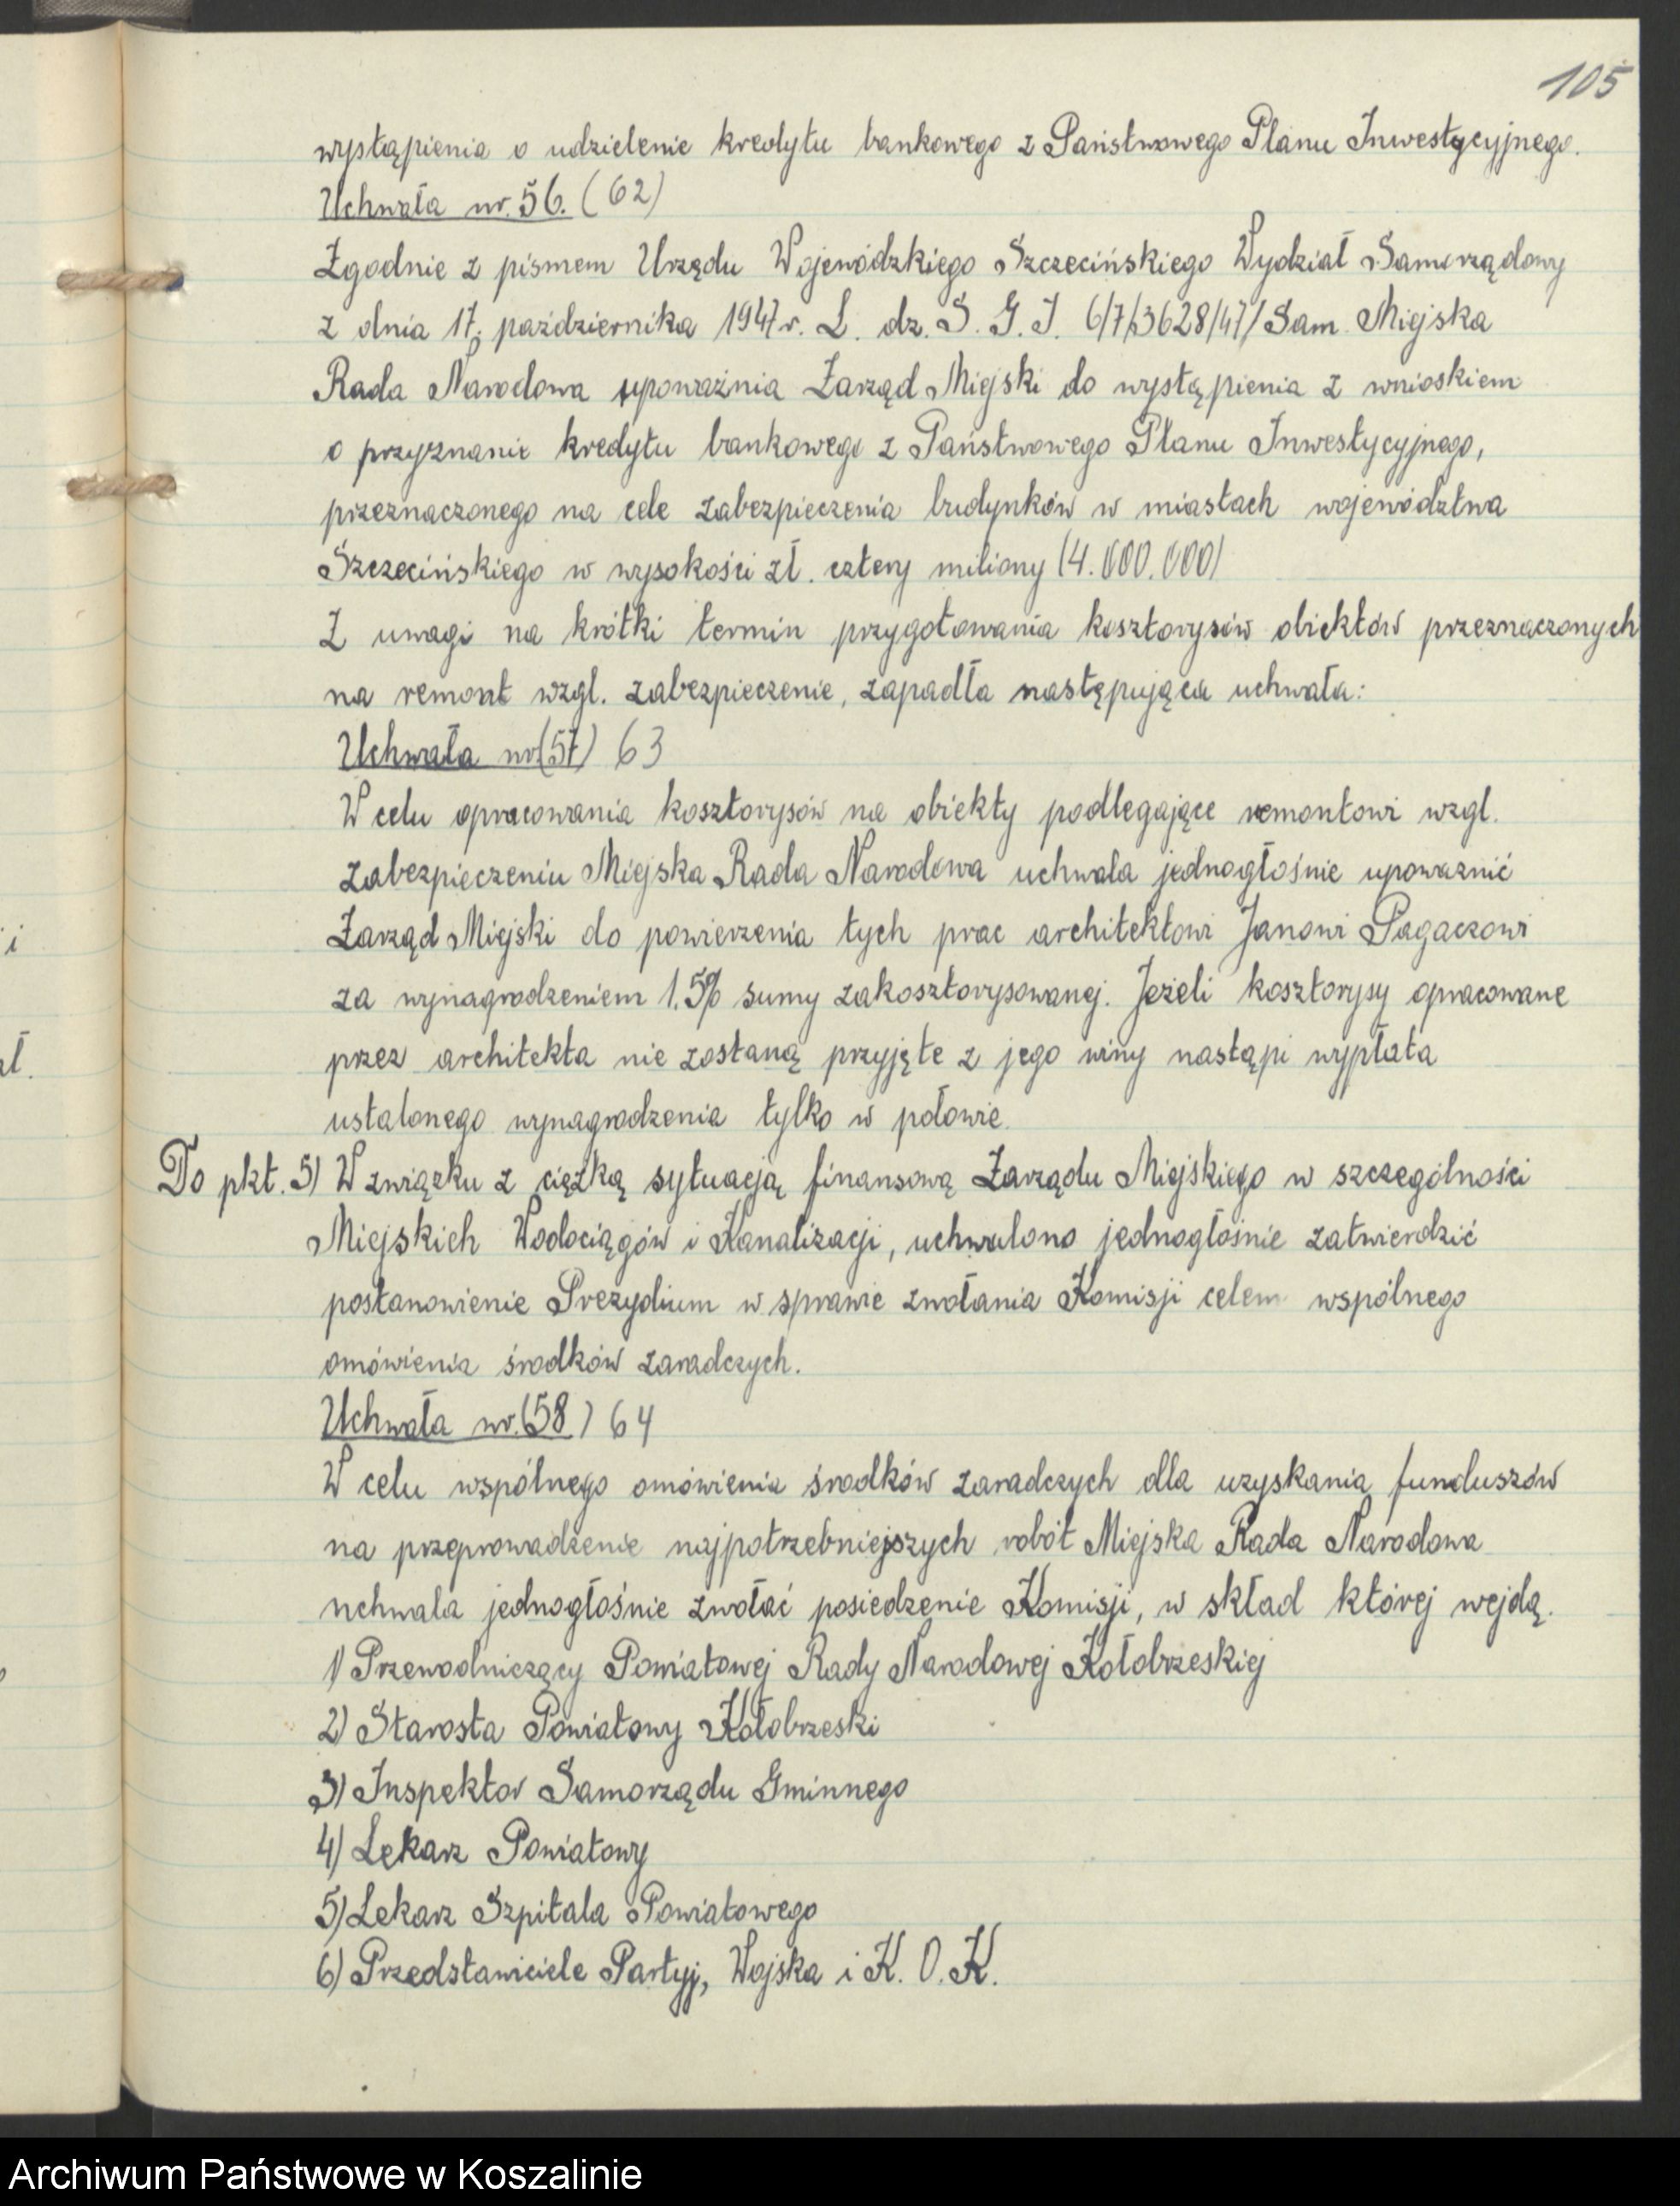 105
wystąpienia o udzielenie kredytu bankowego z Państwowego Planu Inwestycyjnego.
Uchwała nr. 56. (62)
Zgodnie z pismem Urzędu Wojewódzkiego Szczecińskiego Wydział Samorządowy
z dnia 17. października 1947 r. L. dz. S. G. I. 6/7/3628/47/Sam. Miejska
Rada Narodowa upoważnia Zarząd Miejski do wystąpienia z wnioskiem
o przyznanie kredytu bankowego z Państwowego Planu Inwestycyjnego,
przeznaczonego na cele zabezpieczenia budynków w miastach województwa
Szczecińskiego w wysokości zł. cztery miliony (4.000.000)
Z uwagi na krótki termin przygotowania kosztorysów obiektów przeznaczonych
na remont wzgl. zabezpieczenie, zapadła następująca uchwała:
Uchwała nr (57) 63
W celu opracowania kosztorysów na obiekty podlegające remontowi wzgl.
zabezpieczeniu Miejska Rada Narodowa uchwala jednogłośnie upoważnić
Zarząd Miejski do powierzenia tych prac architektowi Janowi Pagaczowi
za wynagrodzeniem 1.5% sumy zakosztorysowanej. Jeżeli kosztorysy opracowane
przez architekta nie zostaną przyjęte z jego winy nastąpi wypłata
ustalonego wynagrodzenia tylko w połowie.
Do pkt. 5) W związku z ciężką sytuacją finansową Zarządu Miejskiego w szczególności
Miejskich Wodociągów i Kanalizacji, uchwalono jednogłośnie zatwierdzić
postanowienie Prezydium w sprawie zwołania Komisji celem wspólnego
omówienia środków zaradczych.
Uchwała nr. (58) 64
W celu wspólnego omówienia środków zaradczych dla uzyskania funduszów
na przeprowadzenie najpotrzebniejszych robót Miejska Rada Narodowa
uchwala jednogłośnie zwołać posiedzenie Komisji, w skład której wejdą.
1) Przewodniczący Powiatowej Rady Narodowej Kołobrzeskiej
2) Starosta Powiatowy Kołobrzeski
3) Inspektor Samorządu Gminnego
4) Lekarz Powiatowy
5) Lekarz Szpitala Powiatowego
6) Przedstawiciele Partyj, Wojska i K. O. K.
Archiwum Państwowe w Koszalinie